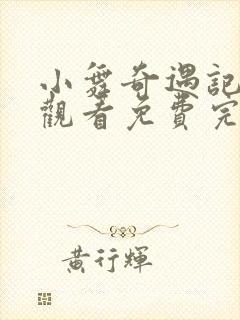 小舞奇遇記
觀看免費完
黃行輝